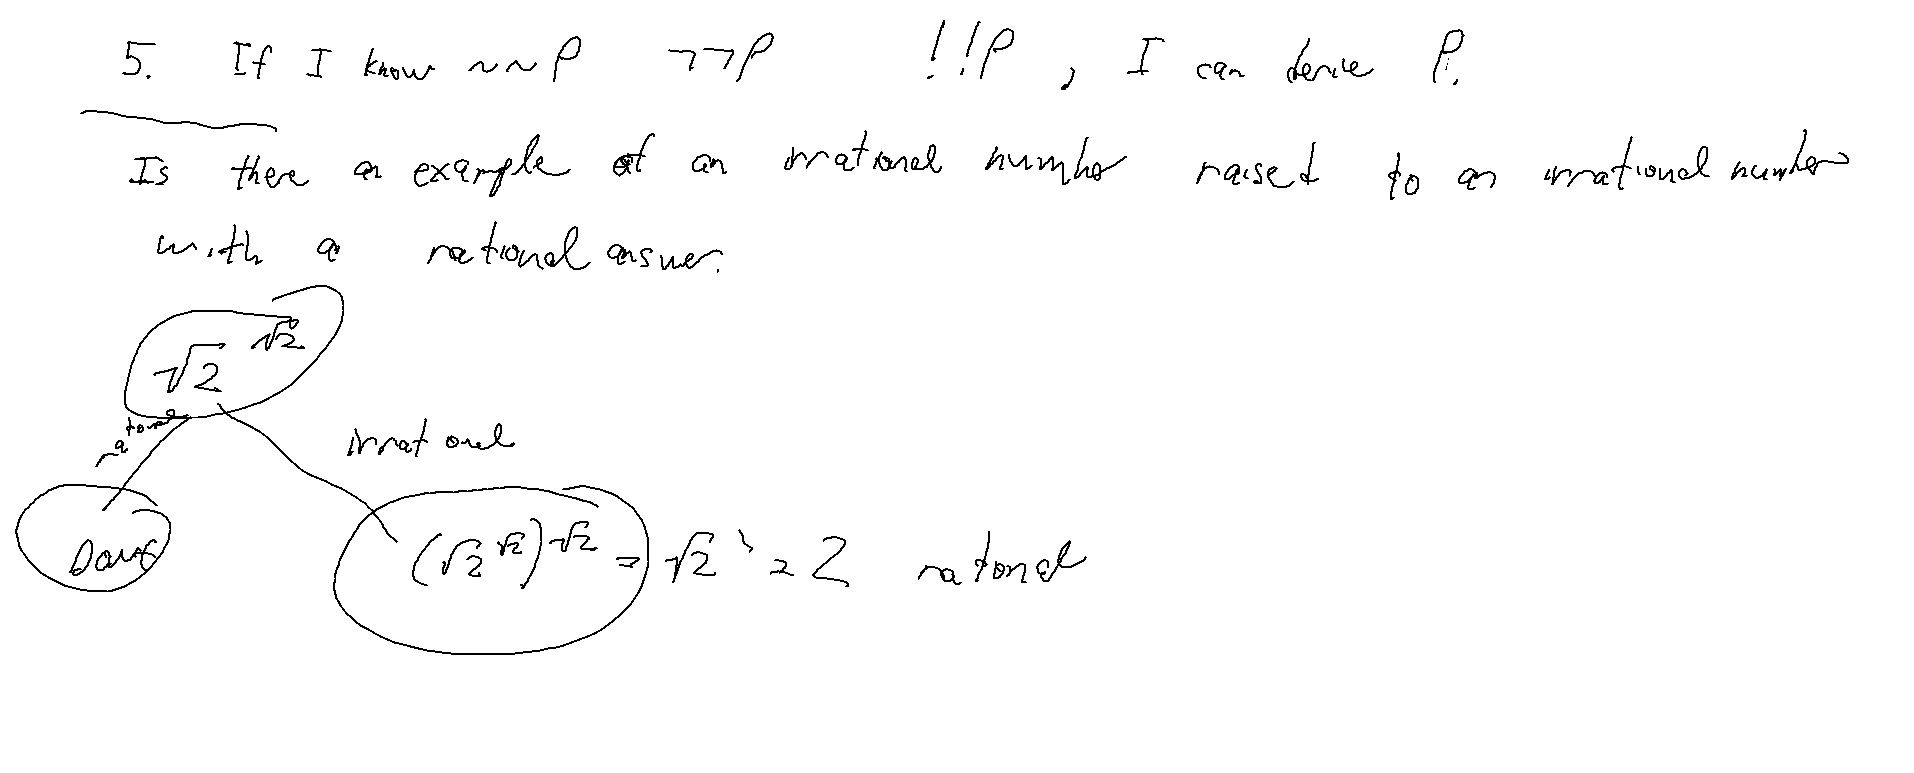 5. If I know ~~P ¬¬P !!P, I can derive P.
Is there an example of an irrational number raised to an irrational number
with a rational answer.
√2^√2
rational
irrational
Done
(√2^√2)^√2 = √2² = 2 rational